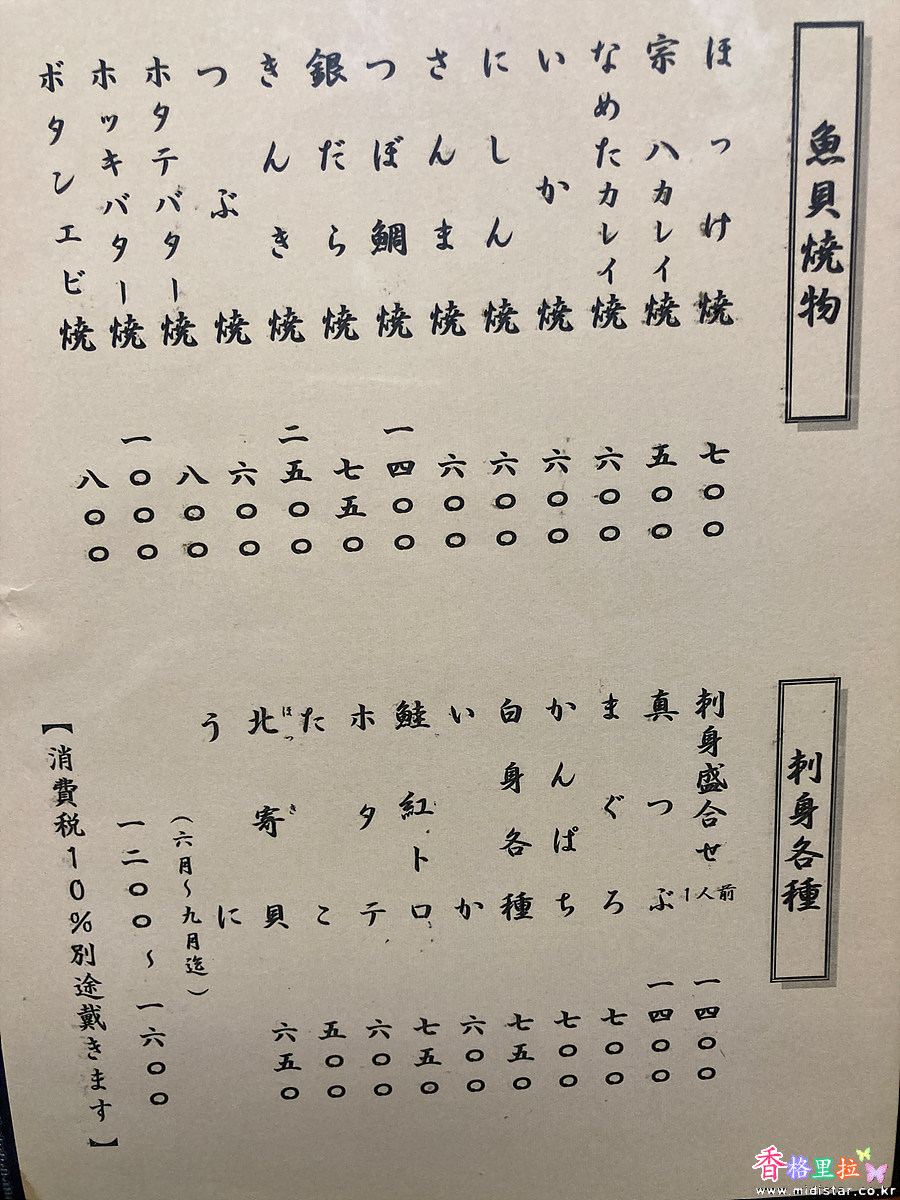 魚貝焼物
ほっけ焼 七〇〇
宗八カレイ焼 五〇〇
なめたカレイ焼 六〇〇
いか焼 六〇〇
にしん焼 六〇〇
さんま焼 六〇〇
つぼ鯛焼 一四〇〇
銀だら焼 七五〇
きんき焼 二五〇〇
つぶ焼 六〇〇
ホタテバター焼 八〇〇
ホッキバター焼 一〇〇〇
ボタンエビ焼 八〇〇
刺身各種
刺身盛合せ1人前 一四〇〇
真つぶ 一四〇〇
まぐろ 七〇〇
かんぱち 七〇〇
白身各種 七五〇
いか 六〇〇
鮭紅トロ 七五〇
ホタテ 六〇〇
たこ 五〇〇
ほっき
北寄貝 六五〇
うに
(六月〜九月迄)
一二〇〇〜一六〇〇
【消費税10%別途戴きます】
香格里拉
www.midistar.co.kr